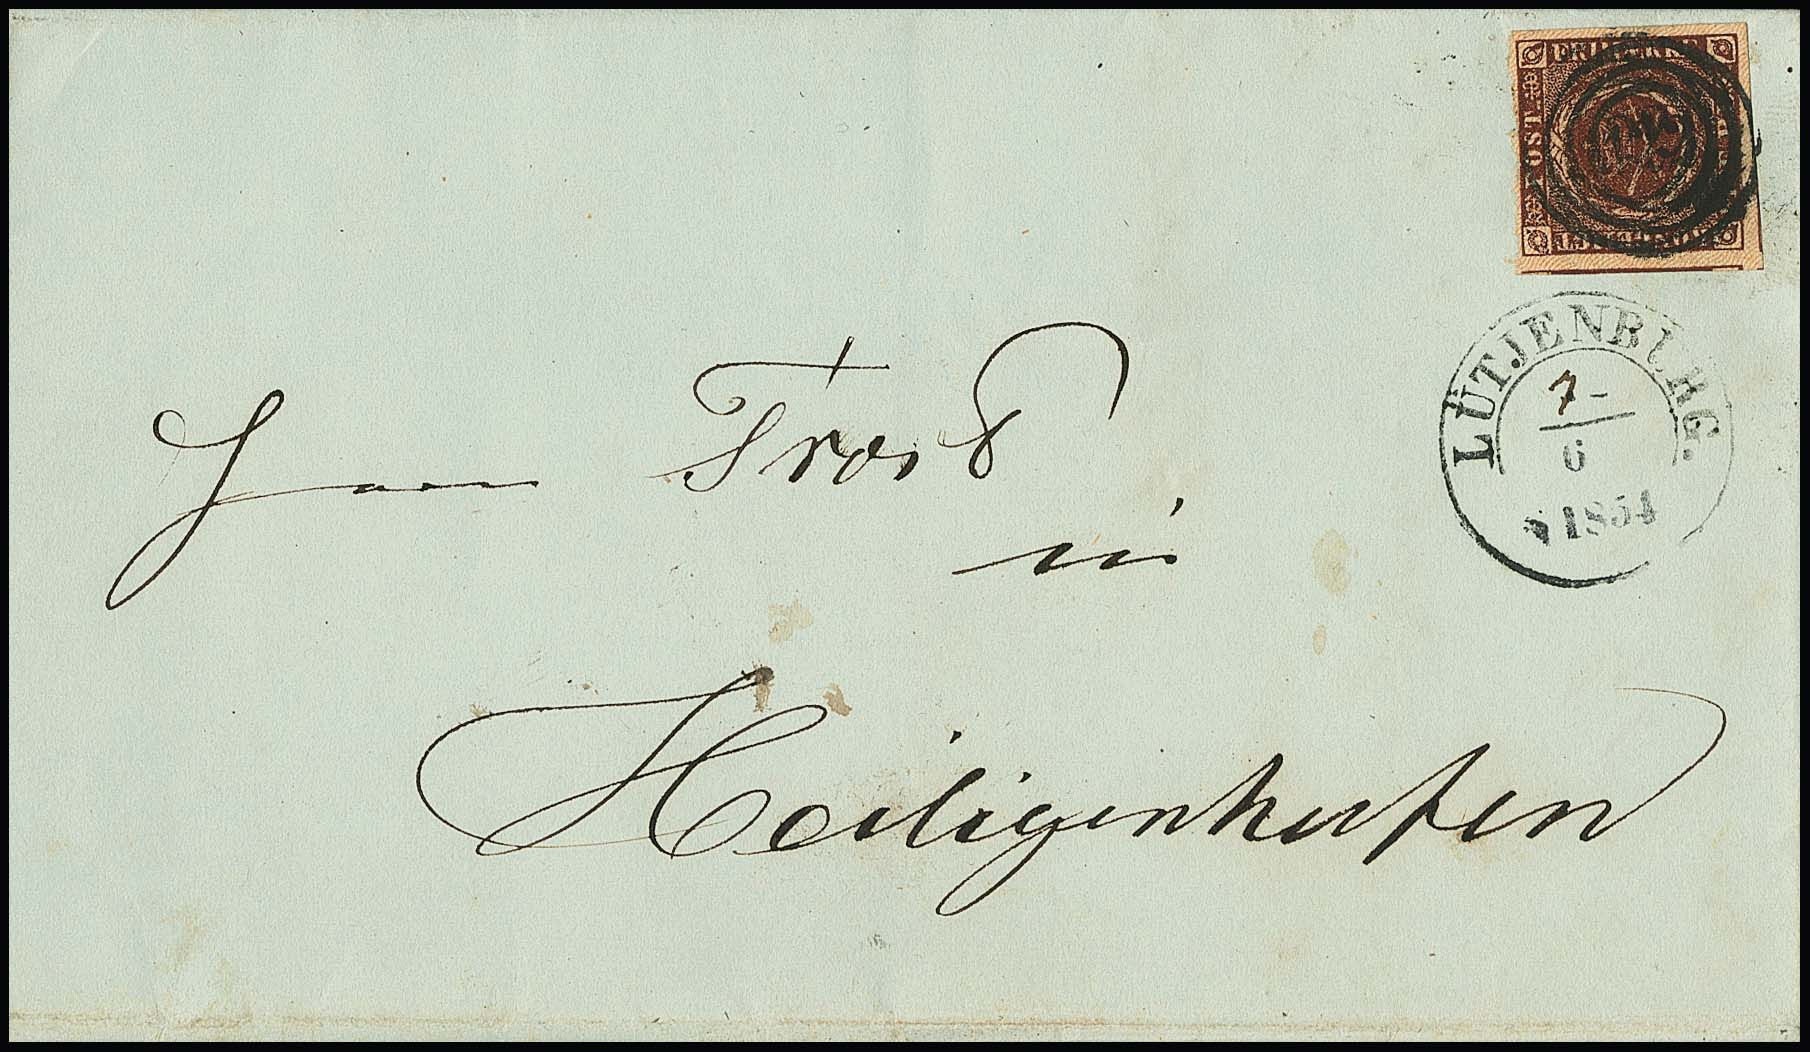 FRIMÆRKE
POST
LÜTJENBURG.
7
6
1854
Herrn Frost
in
Heiligenhafen